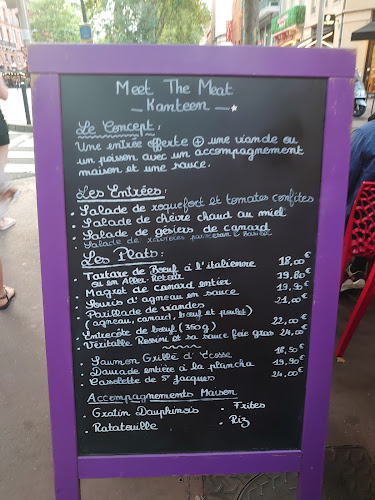 Meet The Meat
- Kanteen -
Le Concept:
Une entrée offerte ⊕ une viande ou
un poisson avec un accompagnement
maison et une sauce.
Les Entrées:
. Salade de roquefort et tomates confites
. Salade de chèvre chaud au miel
. Salade de gésiers de canard
. Salade de ravioles parmesan & basilic
Les Plats:
. Tartare de Bœuf à l'italienne 18,00€
ou en Aller-Retour 19.80€
. Magret de canard entier 19,90€
. Souris d'agneau en sauce 21,00€
. Parillade de viandes
(agneau, canard, bœuf et poulet) 22,00€
. Entrecôte de bœuf (350g) 24,00€
. Véritable Rossini et sa sauce foie gras
. Saumon Grillé d'Ecosse 18,50€
. Daurade entière à la plancha 19,90€
. Cassolette de St Jacques 24,00€
Accompagnements Maison
. Gratin Dauphinois . Frites
. Ratatouille . Riz